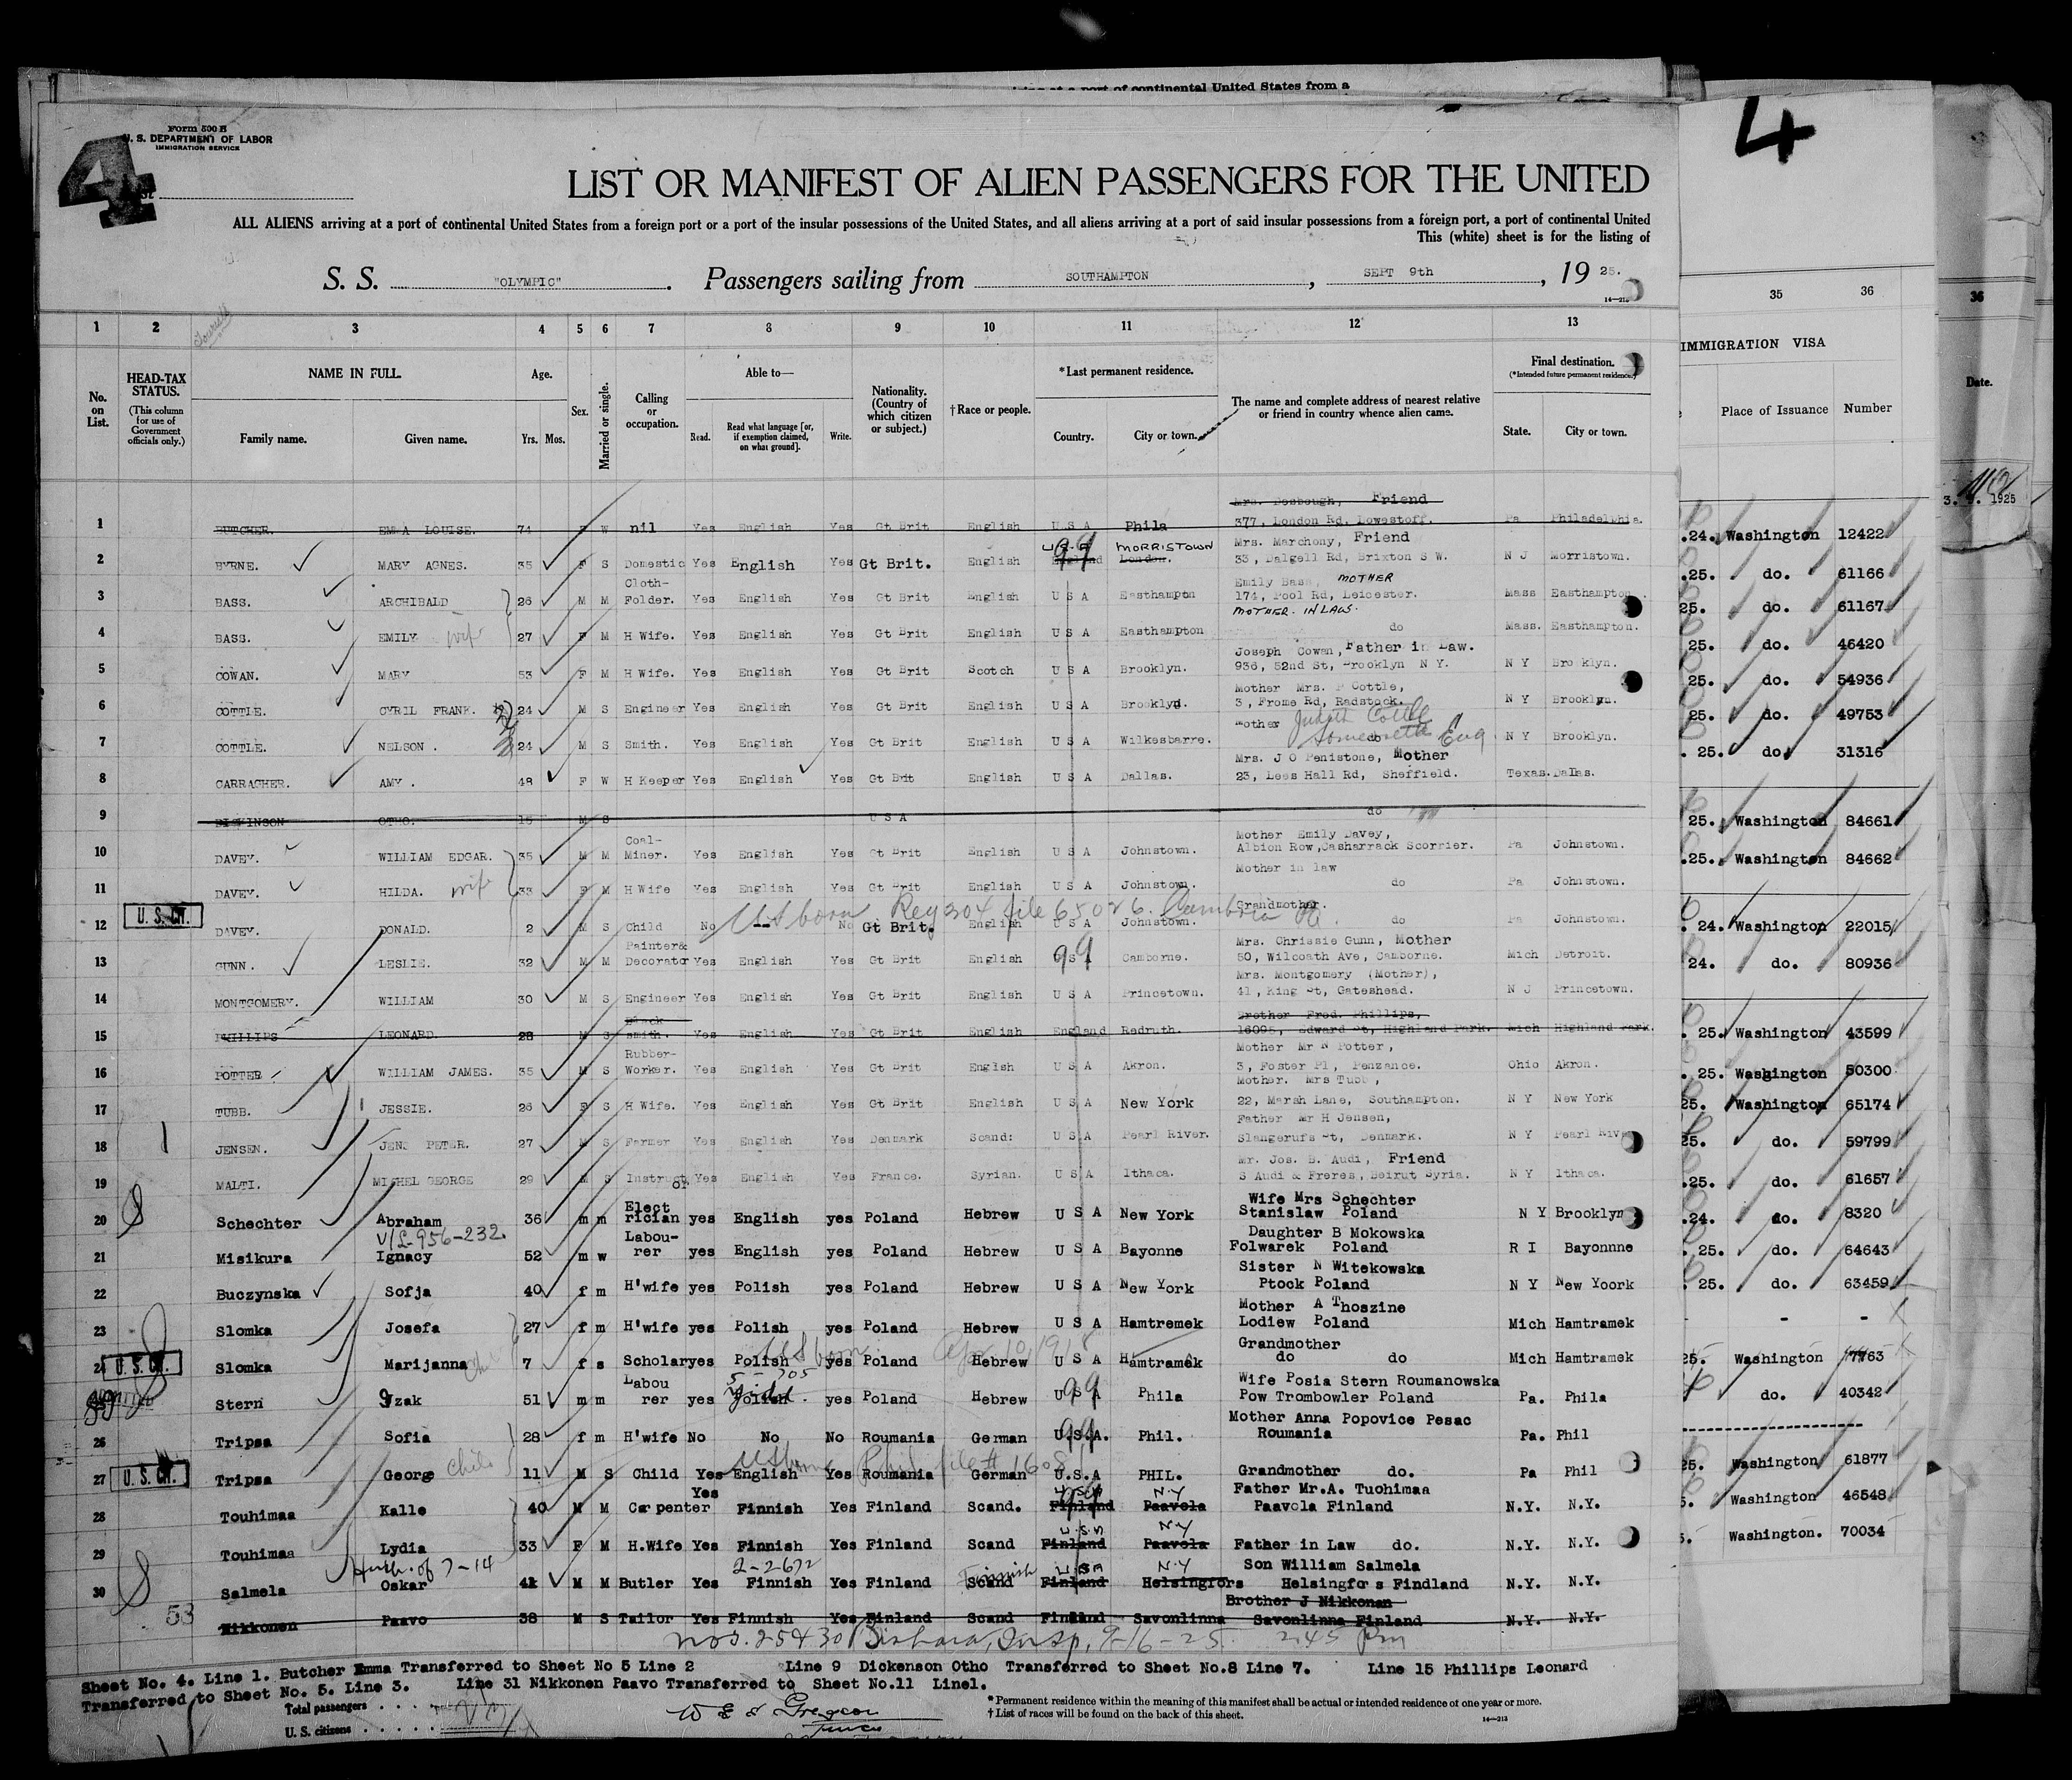 ing at a port of continental United States from a
Form 500 B
U. S. DEPARTMENT OF LABOR
IMMIGRATION SERVICE
4
4
LIST OR MANIFEST OF ALIEN PASSENGERS FOR THE UNITED
ALL ALIENS arriving at a port of continental United States from a foreign port or a port of the insular possessions of the United States, and all aliens arriving at a port of said insular possessions from a foreign port, a port of continental United
This (white) sheet is for the listing of
S. S. "OLYMPIC". Passengers sailing from SOUTHAMPTON, SEPT 9th, 19 25.
1 2 3 4 5 6 7 8 9 10 11 12 13 35 36 36
No. on List. HEAD-TAX STATUS. (This column for use of Government officials only.) NAME IN FULL. Family name. Given name. Age. Yrs. Mos. Sex. Married or single. Calling or occupation. Able to— Read. Read what language [or, if exemption claimed, on what ground]. Write. Nationality. (Country of which citizen or subject.) † Race or people. *Last permanent residence. Country. City or town. The name and complete address of nearest relative or friend in country whence alien came. Final destination. (*Intended future permanent residence.) State. City or town.
IMMIGRATION VISA Place of Issuance Number Date.
1 BUTCHER. EMMA LOUISE. 74 F W nil Yes English Yes Gt Brit English U.S A Phila Friend 377, London Rd, Lowestoff. Pa Philadelphia.
2 BYRNE. MARY AGNES. 35 F S Domestic Yes English Yes Gt Brit. English U.S.A England MORRISTOWN London. Mrs. Marchony, Friend 33, Dalgell Rd, Brixton S W. N J Morristown.
3 BASS. ARCHIBALD 26 M M Cloth-Folder. Yes English Yes Gt Brit English U S A Easthampton Emily Bass, MOTHER 174, Pool Rd, Leicester. Mass Easthampton
4 BASS. EMILY wife 27 F M H Wife. Yes English Yes Gt Brit English U S A Easthampton MOTHER. IN LAWS. do Mass. Easthampton.
5 COWAN. MARY 53 F M H Wife. Yes English Yes Gt Brit Scotch U S A Brooklyn. Joseph Cowan, Father in Law. 936, 52nd St, Brooklyn N Y. N Y Brooklyn.
6 COTTLE. CYRIL FRANK. 24 M S Engineer Yes English Yes Gt Brit English U S A Brooklyn. Mother Mrs. P Cottle, 3, Frome Rd, Radstock. N Y Brooklyn.
7 COTTLE. NELSON. 24 M S Smith. Yes English Yes Gt Brit English U S A Wilkesbarre. Mother Judith Cottle do Somersette Eng N Y Brooklyn.
8 CARRAGHER. AMY. 48 F W H Keeper Yes English Yes Gt Brit English U S A Dallas. Mrs. J O Penistone, Mother 23, Lees Hall Rd, Sheffield. Texas. Dallas.
9 DICKINSON OTHO. 15 M S U S A do
10 DAVEY. WILLIAM EDGAR. 35 M M Coal-Miner. Yes English Yes Gt Brit English U S A Johnstown. Mother Emily Davey, Albion Row, Casharrack Scorrier. Pa Johnstown.
11 DAVEY. HILDA. wife 33 F M H Wife Yes English Yes Gt Brit English U S A Johnstown. Mother in law do Pa Johnstown.
U. S. CIT.
12 DAVEY. DONALD. 2 M S Child No -- No Gt Brit. English U S A Johnstown. Grandmother. do Pa Johnstown.
US born Reg 304 file 65026. Cambria Pa.
13 GUNN. LESLIE. 32 M M Painter& Decorator Yes English Yes Gt Brit English U S A Camborne. Mrs. Chrissie Gunn, Mother 50, Wilcoath Ave, Camborne. Mich Detroit.
14 MONTGOMERY. WILLIAM 30 M S Engineer Yes English Yes Gt Brit English U S A Princetown. Mrs. Montgomery (Mother), 41, King St, Gateshead. N J Princetown.
15 PHILLIPS LEONARD 28 M S Black smith. Yes English Yes Gt Brit English England Redruth. Brother Fred. Phillips, 16095, Edward St, Highland Park. Mich Highland Park.
16 POTTER WILLIAM JAMES. 35 M S Rubber-Worker. Yes English Yes Gt Brit English U S A Akron. Mother Mr N Potter, 3, Foster Pl, Penzance. Ohio Akron.
17 TUBB. JESSIE. 26 F S H Wife. Yes English Yes Gt Brit English U S A New York Mother. Mrs Tubb, 22, Marsh Lane, Southampton. N Y New York
18 JENSEN. JENS PETER. 27 M S Farmer Yes English Yes Denmark Scand: U S A Pearl River. Father Mr H Jensen, Slangerufs St, Denmark. N Y Pearl River
19 MALTI. MICHEL GEORGE 29 M S Instructor Yes English Yes France. Syrian. U S A Ithaca. Mr. Jos. B. Audi, Friend S Audi & Freres, Beirut Syria. N Y Ithaca.
20 Schechter Abraham 36 m m Elect rician yes English yes Poland Hebrew U S A New York Wife Mrs Schechter Stanislaw Poland N Y Brooklyn
V/L-956-232.
21 Misikura Ignacy 52 m w Labou-rer yes English yes Poland Hebrew U S A Bayonne Daughter B Mokowska Folwarek Poland R I Bayonnne
22 Buczynska Sofja 40 f m H'wife yes Polish yes Poland Hebrew U S A New York Sister N Witekowska Ptock Poland N Y New Yoork
23 Slomka Josefa 27 f m H'wife yes Polish yes Poland Hebrew U S A Hamtremek Mother A Thoszine Lodiew Poland Mich Hamtramek
US born Apr 10, 1918
24 U. S. CIT. Slomka Marijanna 7 f s Scholar yes Polish yes Poland Hebrew U S A Hamtramek Grandmother do do Mich Hamtramek
5-705
Stern Izak 51 m m Labou rer yes Polish Yidd. yes Poland Hebrew U S A Phila Wife Posia Stern Roumanowska Pow Trombowler Poland Pa. Phila
26 Tripsa Sofia 28 f m H'wife No No No Roumania German U.S.A. Phil. Mother Anna Popovice Pesac Roumania Pa. Phil
US born Phil file # 1608
27 U. S. CIT. Tripsa George Child 11 M S Child Yes English Yes Roumania German U.S.A PHIL. Grandmother do. Pa Phil
28 Touhimaa Kalle 40 M M Carpenter Yes Finnish Yes Finland Scand. U.S.A Finland N.Y Paavola Father Mr.A. Tuohimaa Paavola Finland N.Y. N.Y.
29 Touhimaa Lydia 33 F M H.Wife Yes Finnish Yes Finland Scand U.S.A Finland N.Y Paavola Father in Law do. N.Y. N.Y.
2-2672
30 Salmela Oskar 41 M M Butler Yes Finnish Yes Finland Scand Finnish U.S.A Finland N.Y Helsingfors Son William Salmela Helsingfors Findland N.Y. N.Y.
53 Nikkonen Paavo 38 M S Tailor Yes Finnish Yes Finland Scand Finland Savonlinna Brother J Nikkonen Savonlinna Finland N.Y. N.Y.
nos. 25 & 30 Insp, 9-16-25. 2.45 Pm
Sheet No. 4. Line 1. Butcher Emma Transferred to Sheet No 5 Line 2 Line 9 Dickenson Otho Transferred to Sheet No.8 Line 7. Line 15 Phillips Leonard
Transferred to Sheet No. 5. Line 3. Line 31 Nikkonen Paavo Transferred to Sheet No.11 Line1.
Total passengers
U. S. citizens
* Permanent residence within the meaning of this manifest shall be actual or intended residence of one year or more.
† List of races will be found on the back of this sheet.
14—213
3. 9. 1925
.24. Washington 12422
.25. do. 61166
25. do. 61167
25. do. 46420
25. do. 54936
25. do. 49753
. 25. do. 31316
25. Washington 84661
.25. Washington 84662
. 24. Washington 22015
24. do. 80936
. 25. Washington 43599
. 25. Washington 50300
25. Washington 65174
25. do. 59799
.25. do. 61657
.24. do. 8320
. 25. do. 64643
. 25. do. 63459
- -
25. Washington 7763
do. 40342
25. Washington 61877
5. Washington 46548
5. Washington. 70034